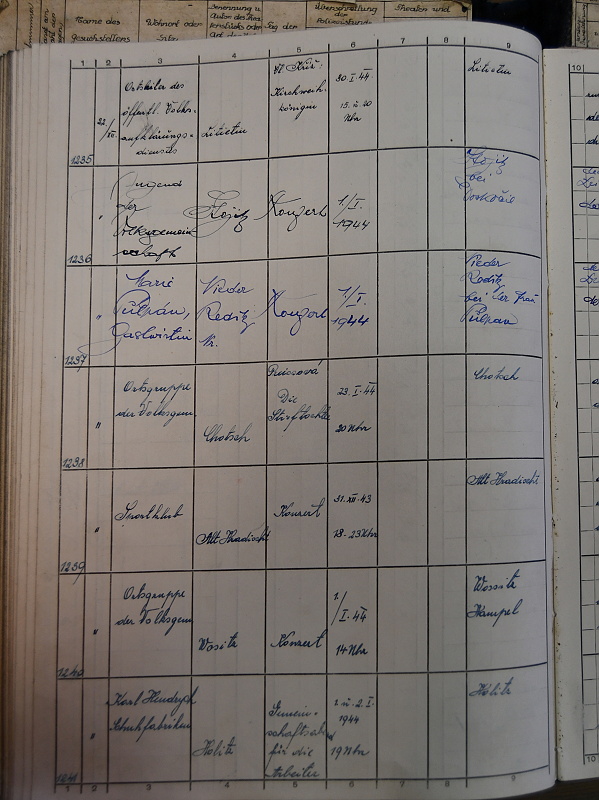 Name des
Gesuchstellers
Wohnort oder
Benennung u.
Autor des
Tag der
der
Polizeistunde
Theater und
1 2 3 4 5 6 7 8 9
10
1235
22./XII.
Ortsleiter des
öffentl. Volks-
aufklärungs-
dienstes
Litietin
Kirchweih-
königin
30.I.44
15 u 20
Uhr
Litietin
1236
"
Jugend
der
Volksgemein
schaft
Konzert
1/I.
1944
bei
1237
"
Marie
Pulpán,
Gastwirtin
Nieder
Reditz
Nr.
Konzert
1/I.
1944
Nieder
Reditz
bei der Frau
Pulpan
1238
"
Ortsgruppe
der Volksgem.
Chotsch
Die
Stieftochter
23.I.44
20 Uhr
Chotsch
1239
"
Sportklub
Alt Hradischt
Konzert
31.XII.43
18-23 Uhr
Alt Hradischt
1240
"
Ortsgruppe
der Volksgem
Wositz
Konzert
1./
I.44
14 Uhr
Wossitz
Hampel
1241
"
Karl Hendrych
Schuhfabriken
Holitz
Gemein-
für die
Arbeiter
1. u. 2. I.
1944
19 Uhr
Holitz
1 2 3 4 5 6 7 8 9
10